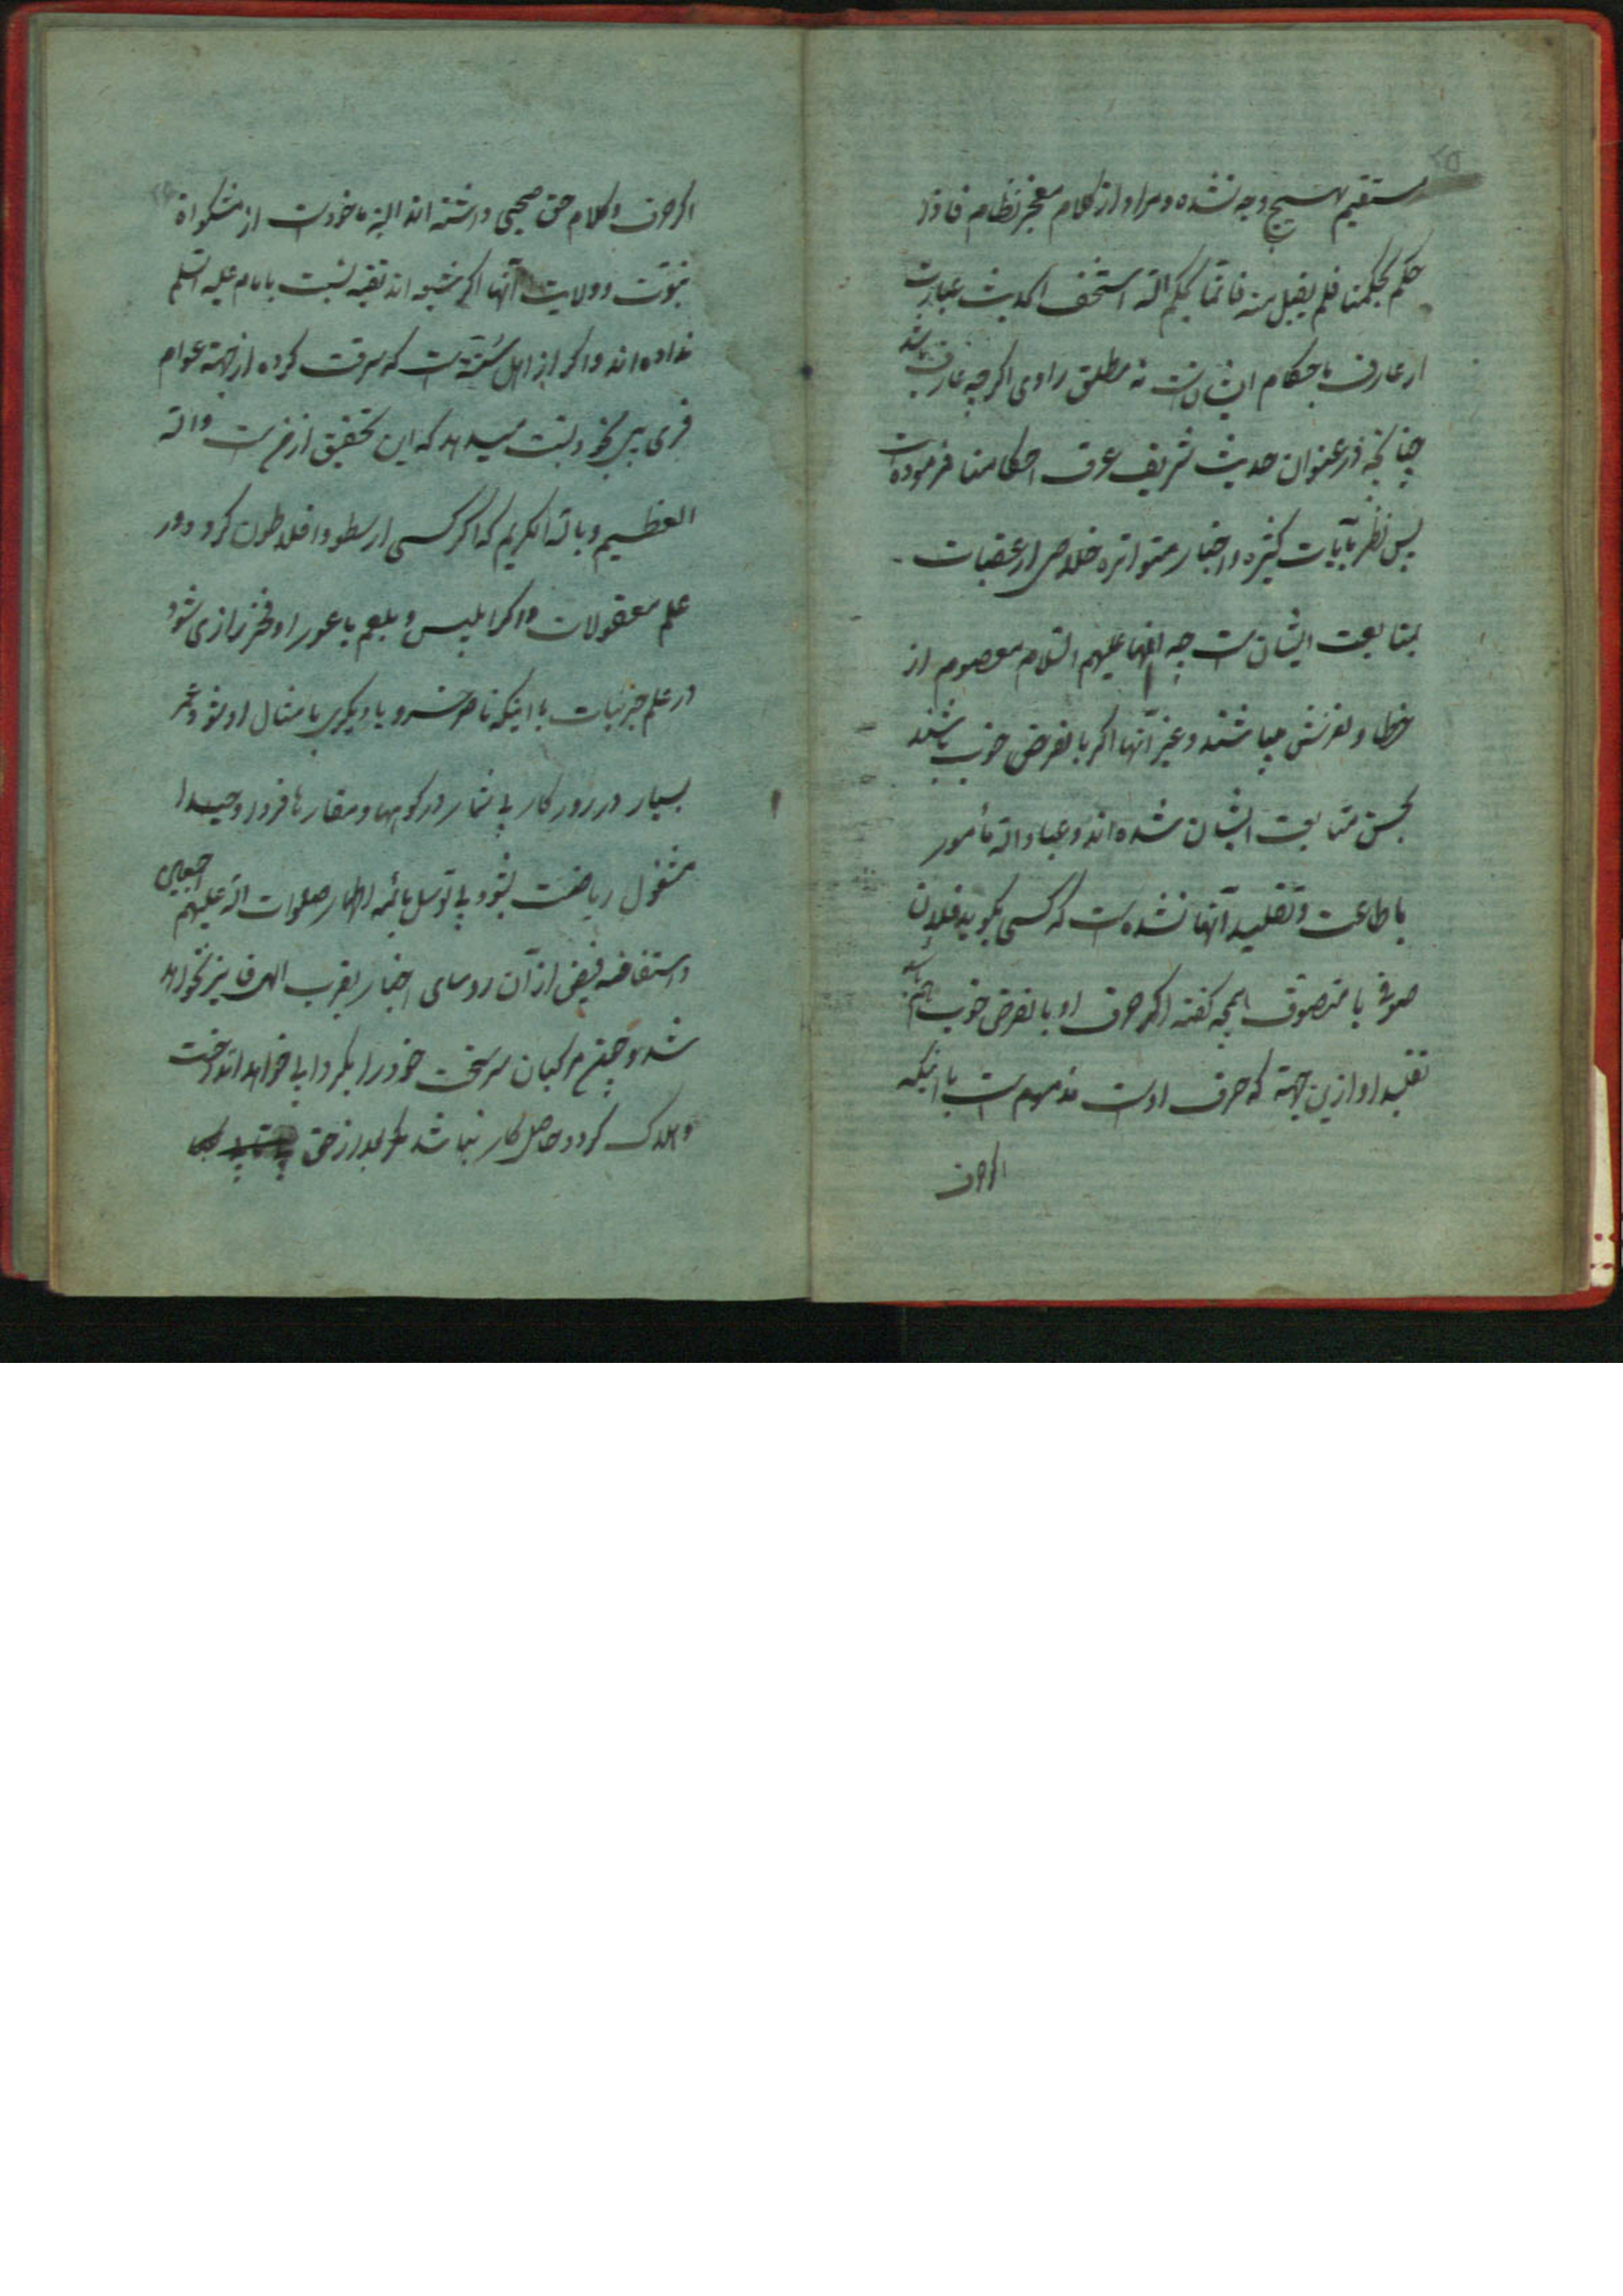 مستقیم بهیچ وجه نشده و مراد از کلام معجز نظام فاذا
حکم بحکمنا فلم یقبل منه فانما بحکم الله استخف الحدیث عبارتست
از عارف باحکام ایشانست نه مطلق راوی اگر چه عارف نباشد
چنانچه در عنوان حدیث شریف عرف احکامنا فرموده است
پس نظر بآیات کثیره و اخبار متواتره خلاصی از عقبات
بمتابعت ایشان است چه آنها علیهم السلام معصوم از
خطا و لغزش میباشند و غیر آنها اگر بالفرض خوب باشند
بحسن متابعت ایشان شده اند و عباد الله مأمور
باطاعت و تقلید آنها نشده است که کسی بگوید فلان
صوفی یا متصوف اینچه گفته اگر حرف او بالفرض خوب هم باشد
تقلید او ازین جهة که حرف اوست مذموم است با اینکه
اگر حرف
اگر حرف و کلام حق صحیحی داشته اند البته ماخوذست از مشکواة
نبوت و ولایت آنها اگر شیعه اند تقیه نسبت بامام علیه السلم
نداده اند و اگر از اهل سنة است که سرقت کرده از جهة عوام
فریبی بخود نسبت میدهد که این تحقیق از من است والله
العظیم و بالله الکریم که اگر کسی ارسطو و افلاطون گردد در
علم معقولات و اگر ابلیس و بلعم باعورا و فخر رازی شود
در علم جزئیات با اینکه ناصر خسرو یا دیگری بامثال او شود و عمر
بسیار در روزگار بی شمار در کوهها و مغارها فردا وحیدا
مشغول ریاضت بشود بی توسل بائمه اطهار صلوات الله علیهم اجمعین
و استفاضه فیض از آن روسای اخیار بقرب الهی فایز نخواهد
شد و چنین مرکبان سرسخت خود را بگرداب خواهد انداخت
و هلاک گردد و حاصل کار نباشد مگر بعد از حق